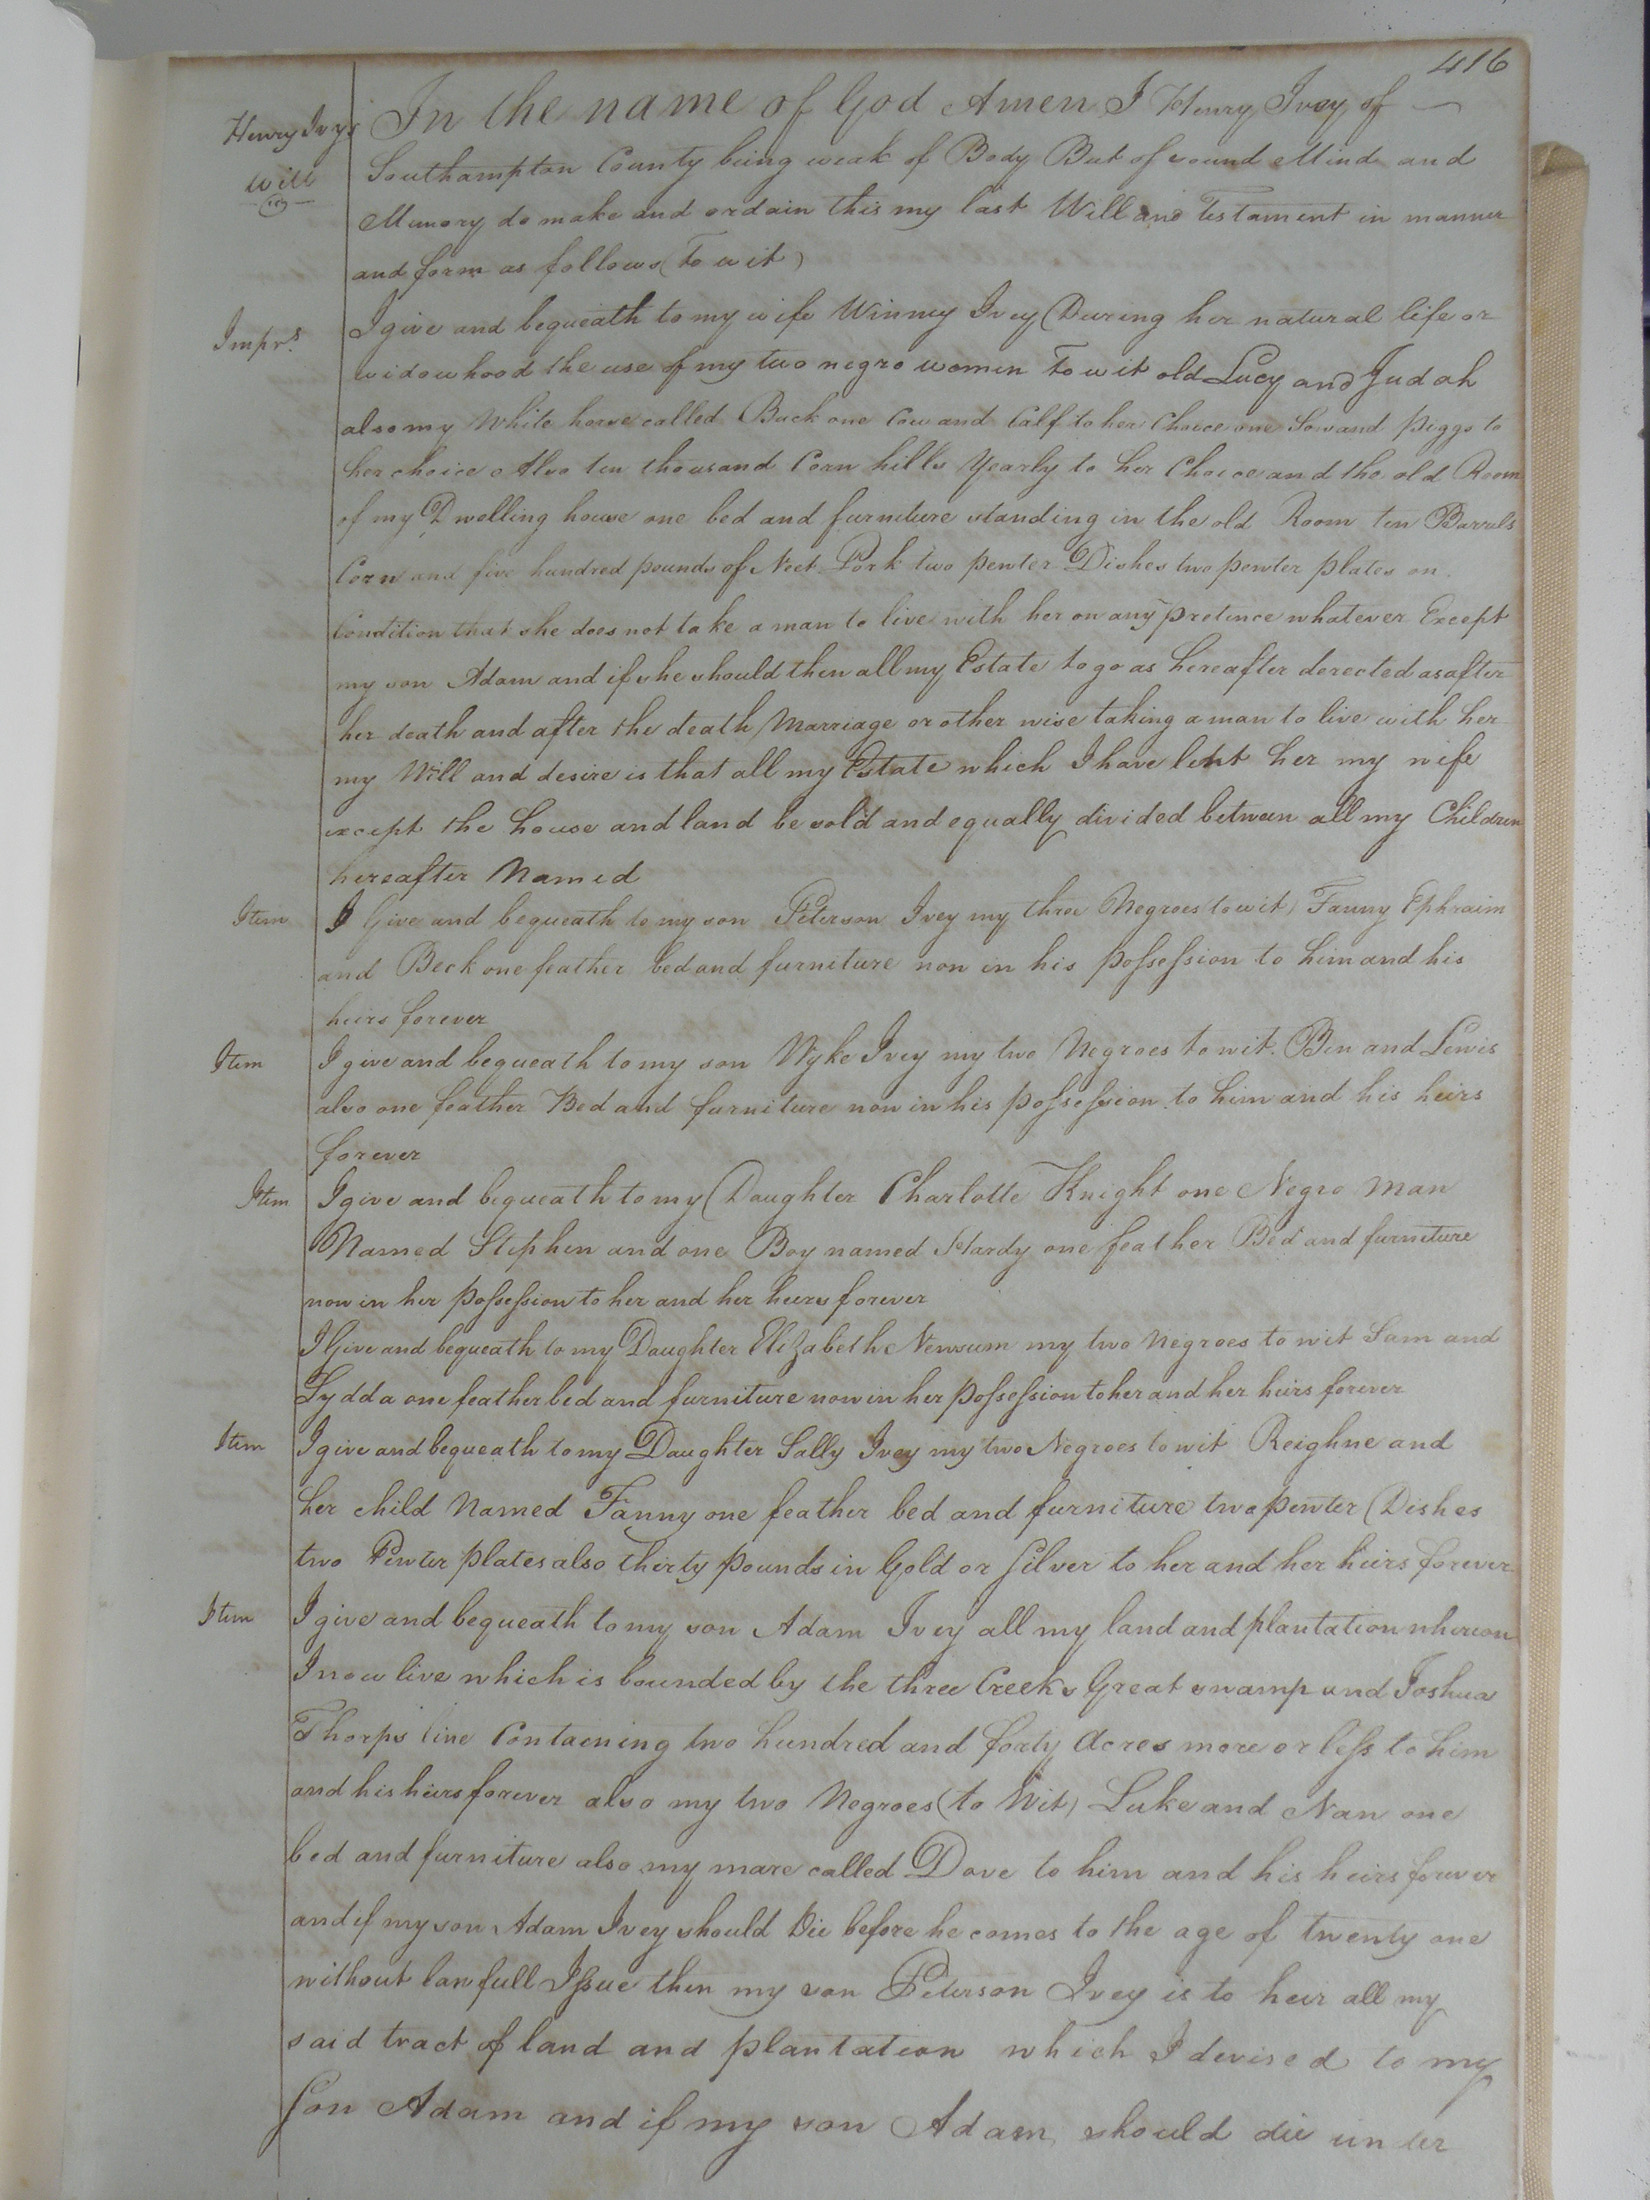 416
Henry Ivys
Will
In the name of God Amen I Henry Ivey of
Southampton County being weak of Body But of sound Mind and
Memory do make and ordain this my last Will and Testament in manner
and form as follows (To wit)
Imprs.
I give and bequeath to my wife Winney Ivey During her natural life or
widowhood the use of my two negro women To wit old Lucy and Judah
also my White horse called Buck one Cow and Calf to her Choice one Sow and Piggs to
her choice Also ten thousand Corn hills Yearly to her Choice and the old Room
of my Dwelling house one bed and furniture standing in the old Room ten Barrels
Corn and five hundred pounds of Neet Pork two pewter Dishes two pewter plates on
Condition that she does not take a man to live with her on any pretence whatever Except
my son Adam and if she should then all my Estate to go as hereafter derected as after
her death and after the death Marriage or other wise taking a man to live with her
my Will and desire is that all my Estate which I have lent her my wife
except the house and land be sold and equally divided between all my Children
hereafter Named
Item
I Give and bequeath to my son Peterson Ivey my three Negroes to wit) Fanny Ephraim
and Beck one feather bed and furniture now in his possession to him and his
heirs forever
Item
I give and bequeath to my son Wyke Ivey my two Negroes to wit. Ben and Lewis
also one feather Bed and furniture now in his possession to him and his heirs
forever
Item
I give and bequeath to my Daughter Charlotte Knight one Negro Man
Named Stephen and one Boy named Hardy one feather Bed and furniture
now in her possession to her and her heirs forever
I Give and bequeath to my Daughter Elizabeth Newsum my two Negroes to wit Sam and
Lydda one feather bed and furniture now in her possession to her and her heirs forever
Item
I give and bequeath to my Daughter Sally Ivey my two Negroes to wit Reighne and
her child Named Fanny one feather bed and furniture two pewter Dishes
two Pewter plates also thirty pounds in Gold or Silver to her and her heirs forever
Item
I give and bequeath to my son Adam Ivey all my land and plantation whereon
I now live which is bounded by the three Creeks Great swamp and Joshua
Thorps line Containing two hundred and forty Acres more or less to him
and his heirs forever also my two Negroes (to Wit) Luke and Nan one
bed and furniture also my mare called Dove to him and his heirs forever
and if my son Adam Ivey should Die before he comes to the age of twenty one
without lawfull Issue then my son Peterson Ivey is to heir all my
said tract of land and plantation which I devised to my
Son Adam and if my son Adam should die under